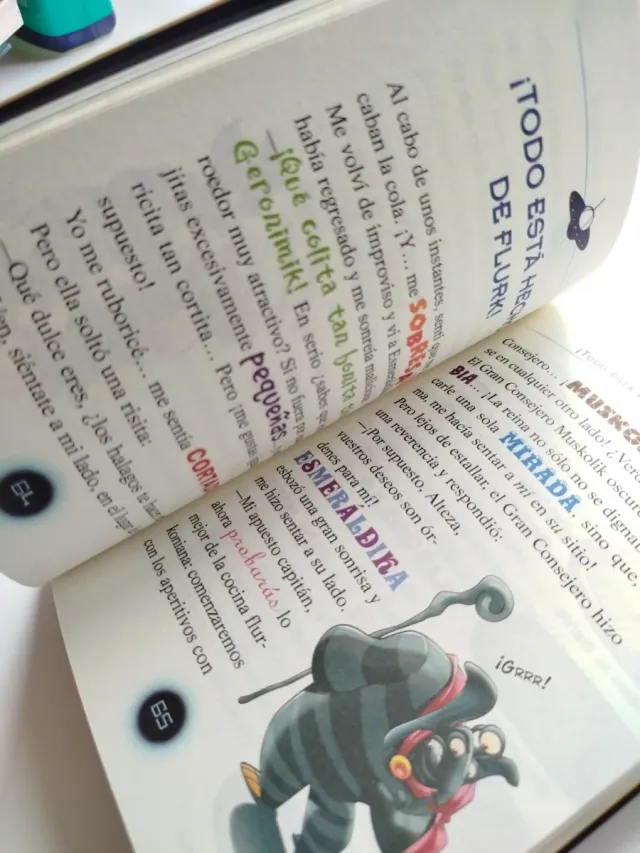 ¡TODO ESTÁ
DE FLURK!
Al cabo de unos instantes, sentí que
caban la cola. ¡Y... me
Me volví de improviso y vi a
había regresado y me sonreía
—¡Qué colita tan bonita
Geronimik! En serio ¿sabes que
roedor muy atractivo? Si no fuera por
jitas excesivamente pequeñas
ricita tan cortita... Pero ¡me gustas
supuesto!
Yo me ruboricé... me sentía
Pero ella soltó una risita:
—Qué dulce eres, ¿los halagos te
siéntate a mi lado, en el lugar
64
Consejero... ¡
se en cualquier otro lado!
El Gran Consejero Muskolik
BIA... ¡La reina no sólo no se
carle una sola MIRADA, sino que,
ma, me hacía sentar a mí en su sitio!
Pero lejos de estallar, el Gran Consejero hizo
una reverencia y respondió:
—¡Por supuesto, Alteza,
vuestros deseos son ór-
denes para mí!
ESMERALDIKA
esbozó una gran sonrisa y
me hizo sentar a su lado.
—Mi apuesto capitán,
ahora probarás lo
mejor de la cocina flur-
koniana: comenzaremos
con los aperitivos con
¡GRRR!
65